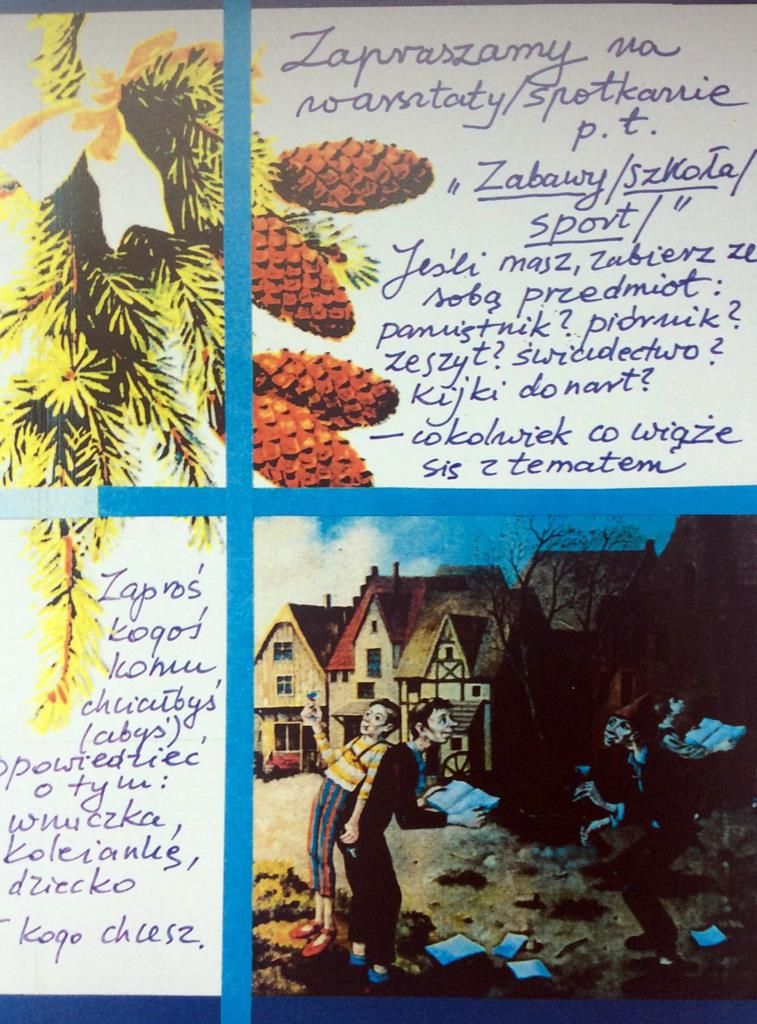 Zapraszamy na
warsztaty/spotkanie
p. t.
„Zabawy/szkoła/
sport/"
Jeśli masz, zabierz ze
sobą przedmiot:
pamiętnik? piórnik?
zeszyt? świadectwo?
kijki do nart?
— cokolwiek co wiąże
się z tematem
Zaproś
kogoś
komu
chciałbyś
(abyś)
opowiedzieć
o tym:
wnuczka,
koleżankę,
dziecko
kogo chcesz.